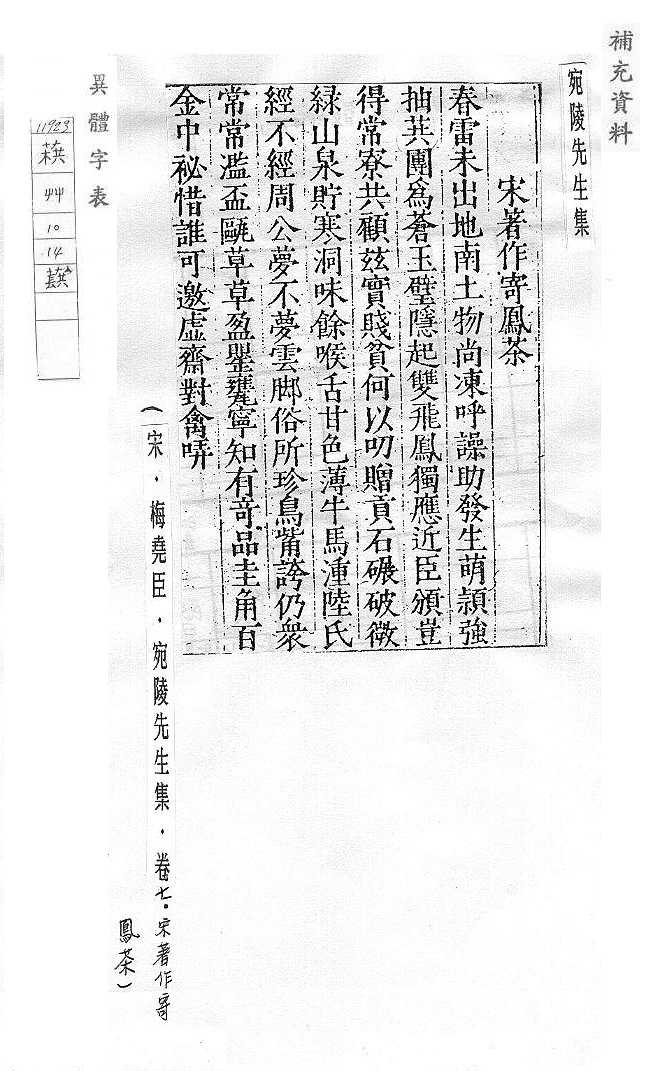 補充資料
宛陵先生集
宋著作寄鳳茶
春雷未出地南土物尚凍呼譟助發生萌頴強
抽莢團為蒼玉璧隱起雙飛鳳獨應近臣頒豈
得常寮共顧兹實賤貧何以叨贈貢石碾破微
緑山泉貯寒洞味餘喉舌甘色薄牛馬湩陸氏
經不經周公夢不夢雲脚俗所珍鳥觜誇仍衆
常常濫盃甌草草盈罌甕寧知有竒品圭角百
金中祕惜誰可邀虚齋對禽哢
(宋．梅堯臣．宛陵先生集．卷七．宋著作寄
鳳茶)
異體字表
11923
44
10
14